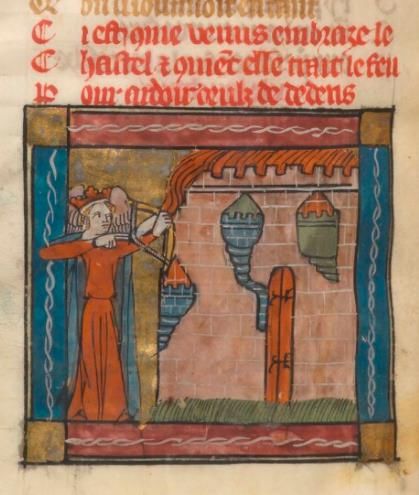 C i est ꝯme venus embraze le
C hastel ⁊ ꝯmẽt elle trait le feu
P our ardoir ceulz de dedens